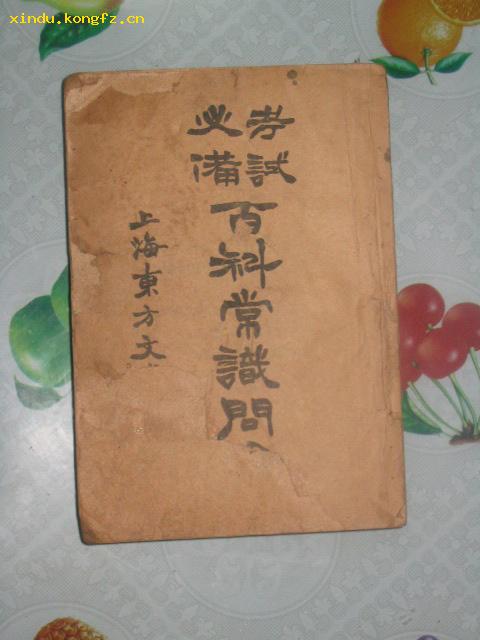 xindu.kongfz.cn
考試
必備
百科常識問
上海東方文